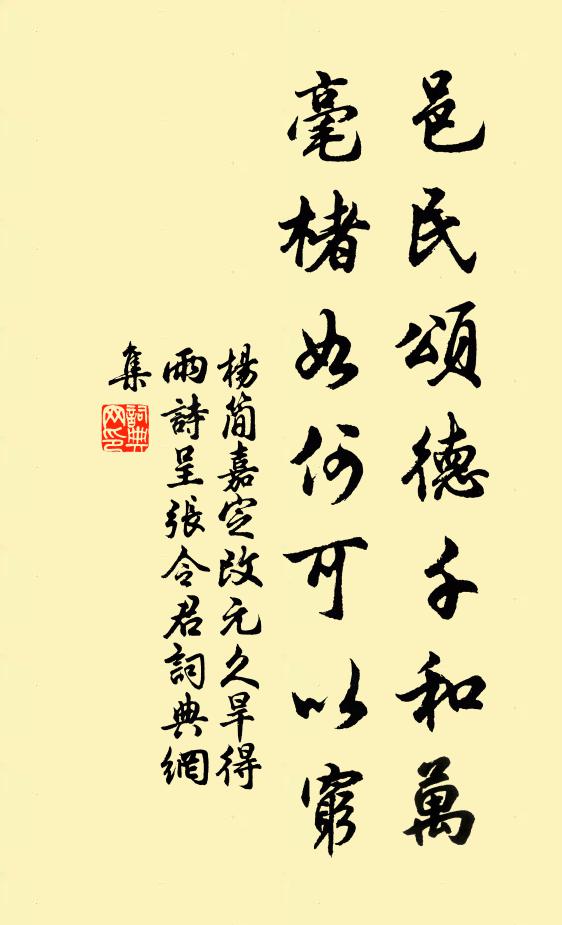 邑民頌德千和萬
毫楮如何可以窮
楊簡嘉定改元久旱得
雨詩呈張令君詞典網
集
詞典
网印